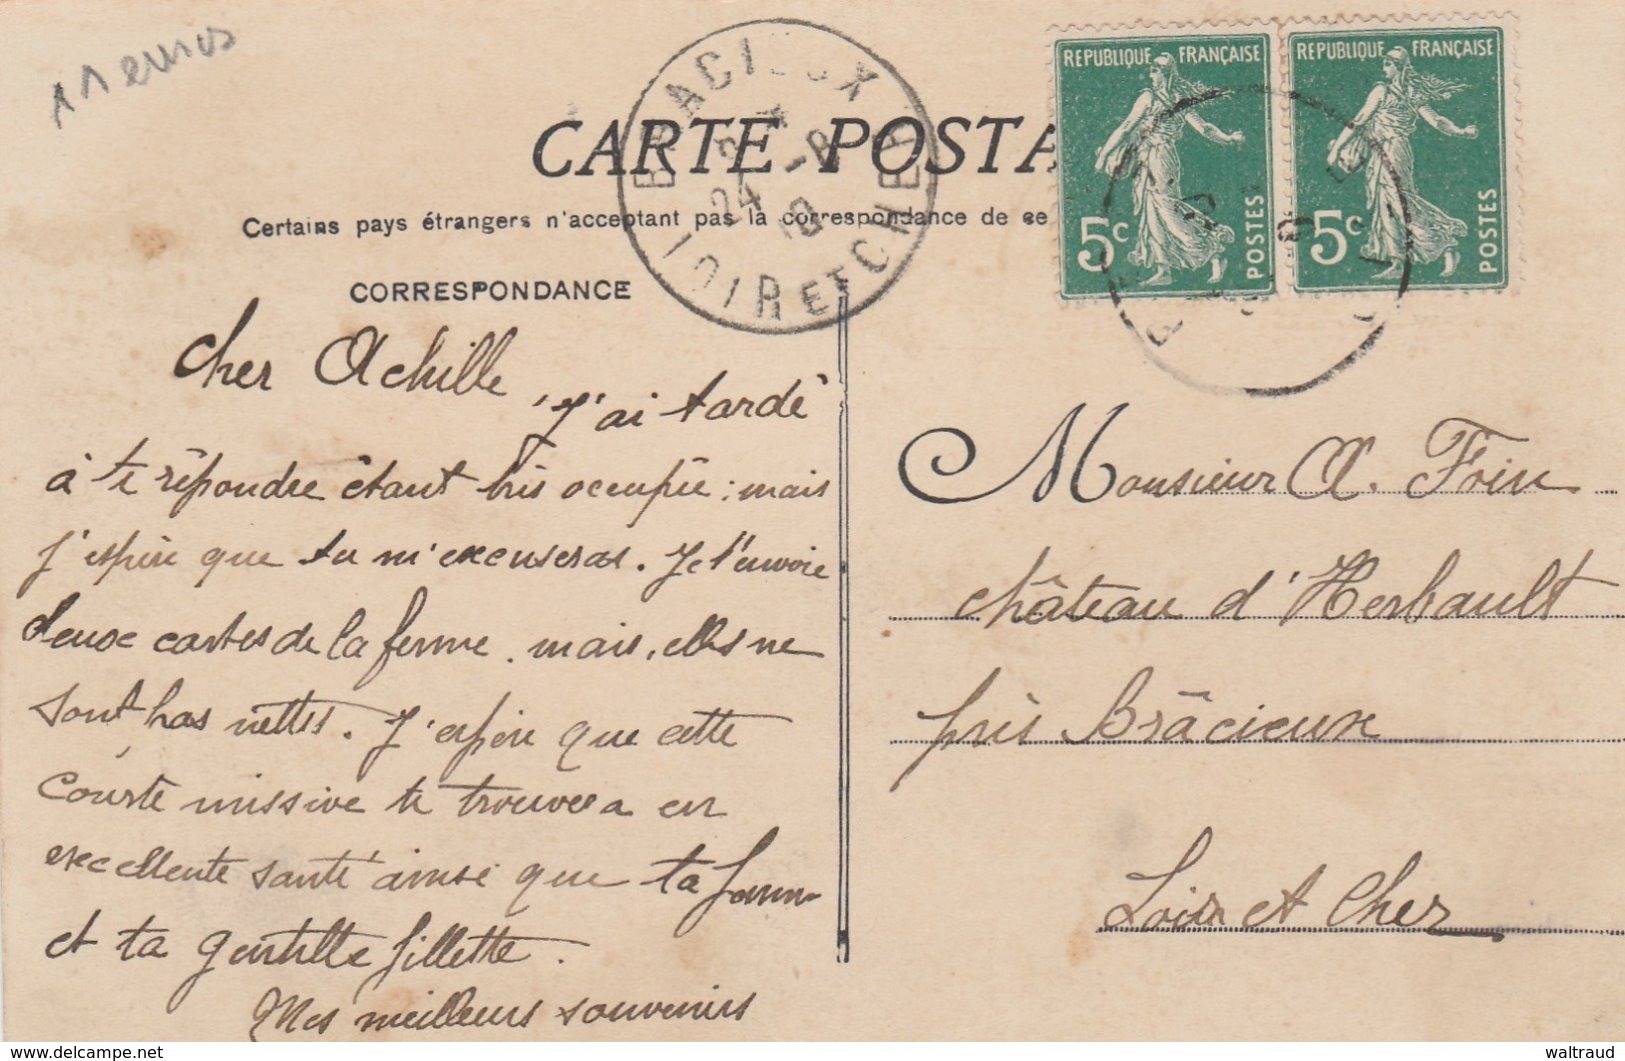 11 euros
CARTE POSTA
BRACIEUX
24 -8
10
LOIR ET CHER
REPUBLIQUE FRANÇAISE
5c POSTES
REPUBLIQUE FRANÇAISE
5c POSTES
Certains pays étrangers n'acceptant pas la correspondance de ce
CORRESPONDANCE
Cher Achille
J'ai tardé
à te répondre étant très occupée; mais
j'espère que tu m'excuseras. Je t'envoie
deux cartes de la ferme. mais, elles ne
sont pas nettes. J'espère que cette
courte missive te trouvera en
excellente santé ainsi que ta fem-
et ta gentille fillette.
Mes meilleurs souvenirs
Monsieur A. Foin
château d'Herbault
près Brâcieux
Loir et Cher
delcampe.net
waltraud